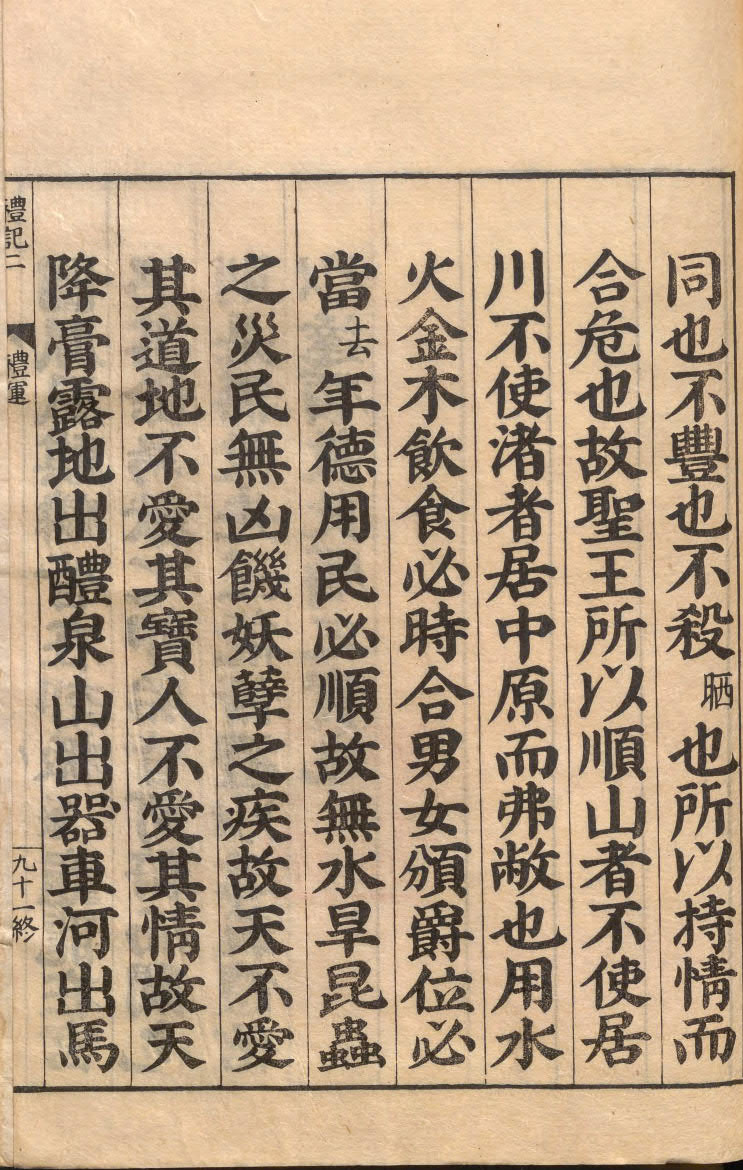 同也不豐也不殺晒也所以持情而
合危也故聖王所以順山者不使居
川不使渚者居中原而弗敝也用水
火金木飲食必時合男女頒爵位必
當去年德用民必順故無水旱昆蟲
之災民無凶饑妖孽之疾故天不愛
其道地不愛其寶人不愛其情故天
降膏露地出醴泉山出器車河出馬
禮記二
禮運
九十一終